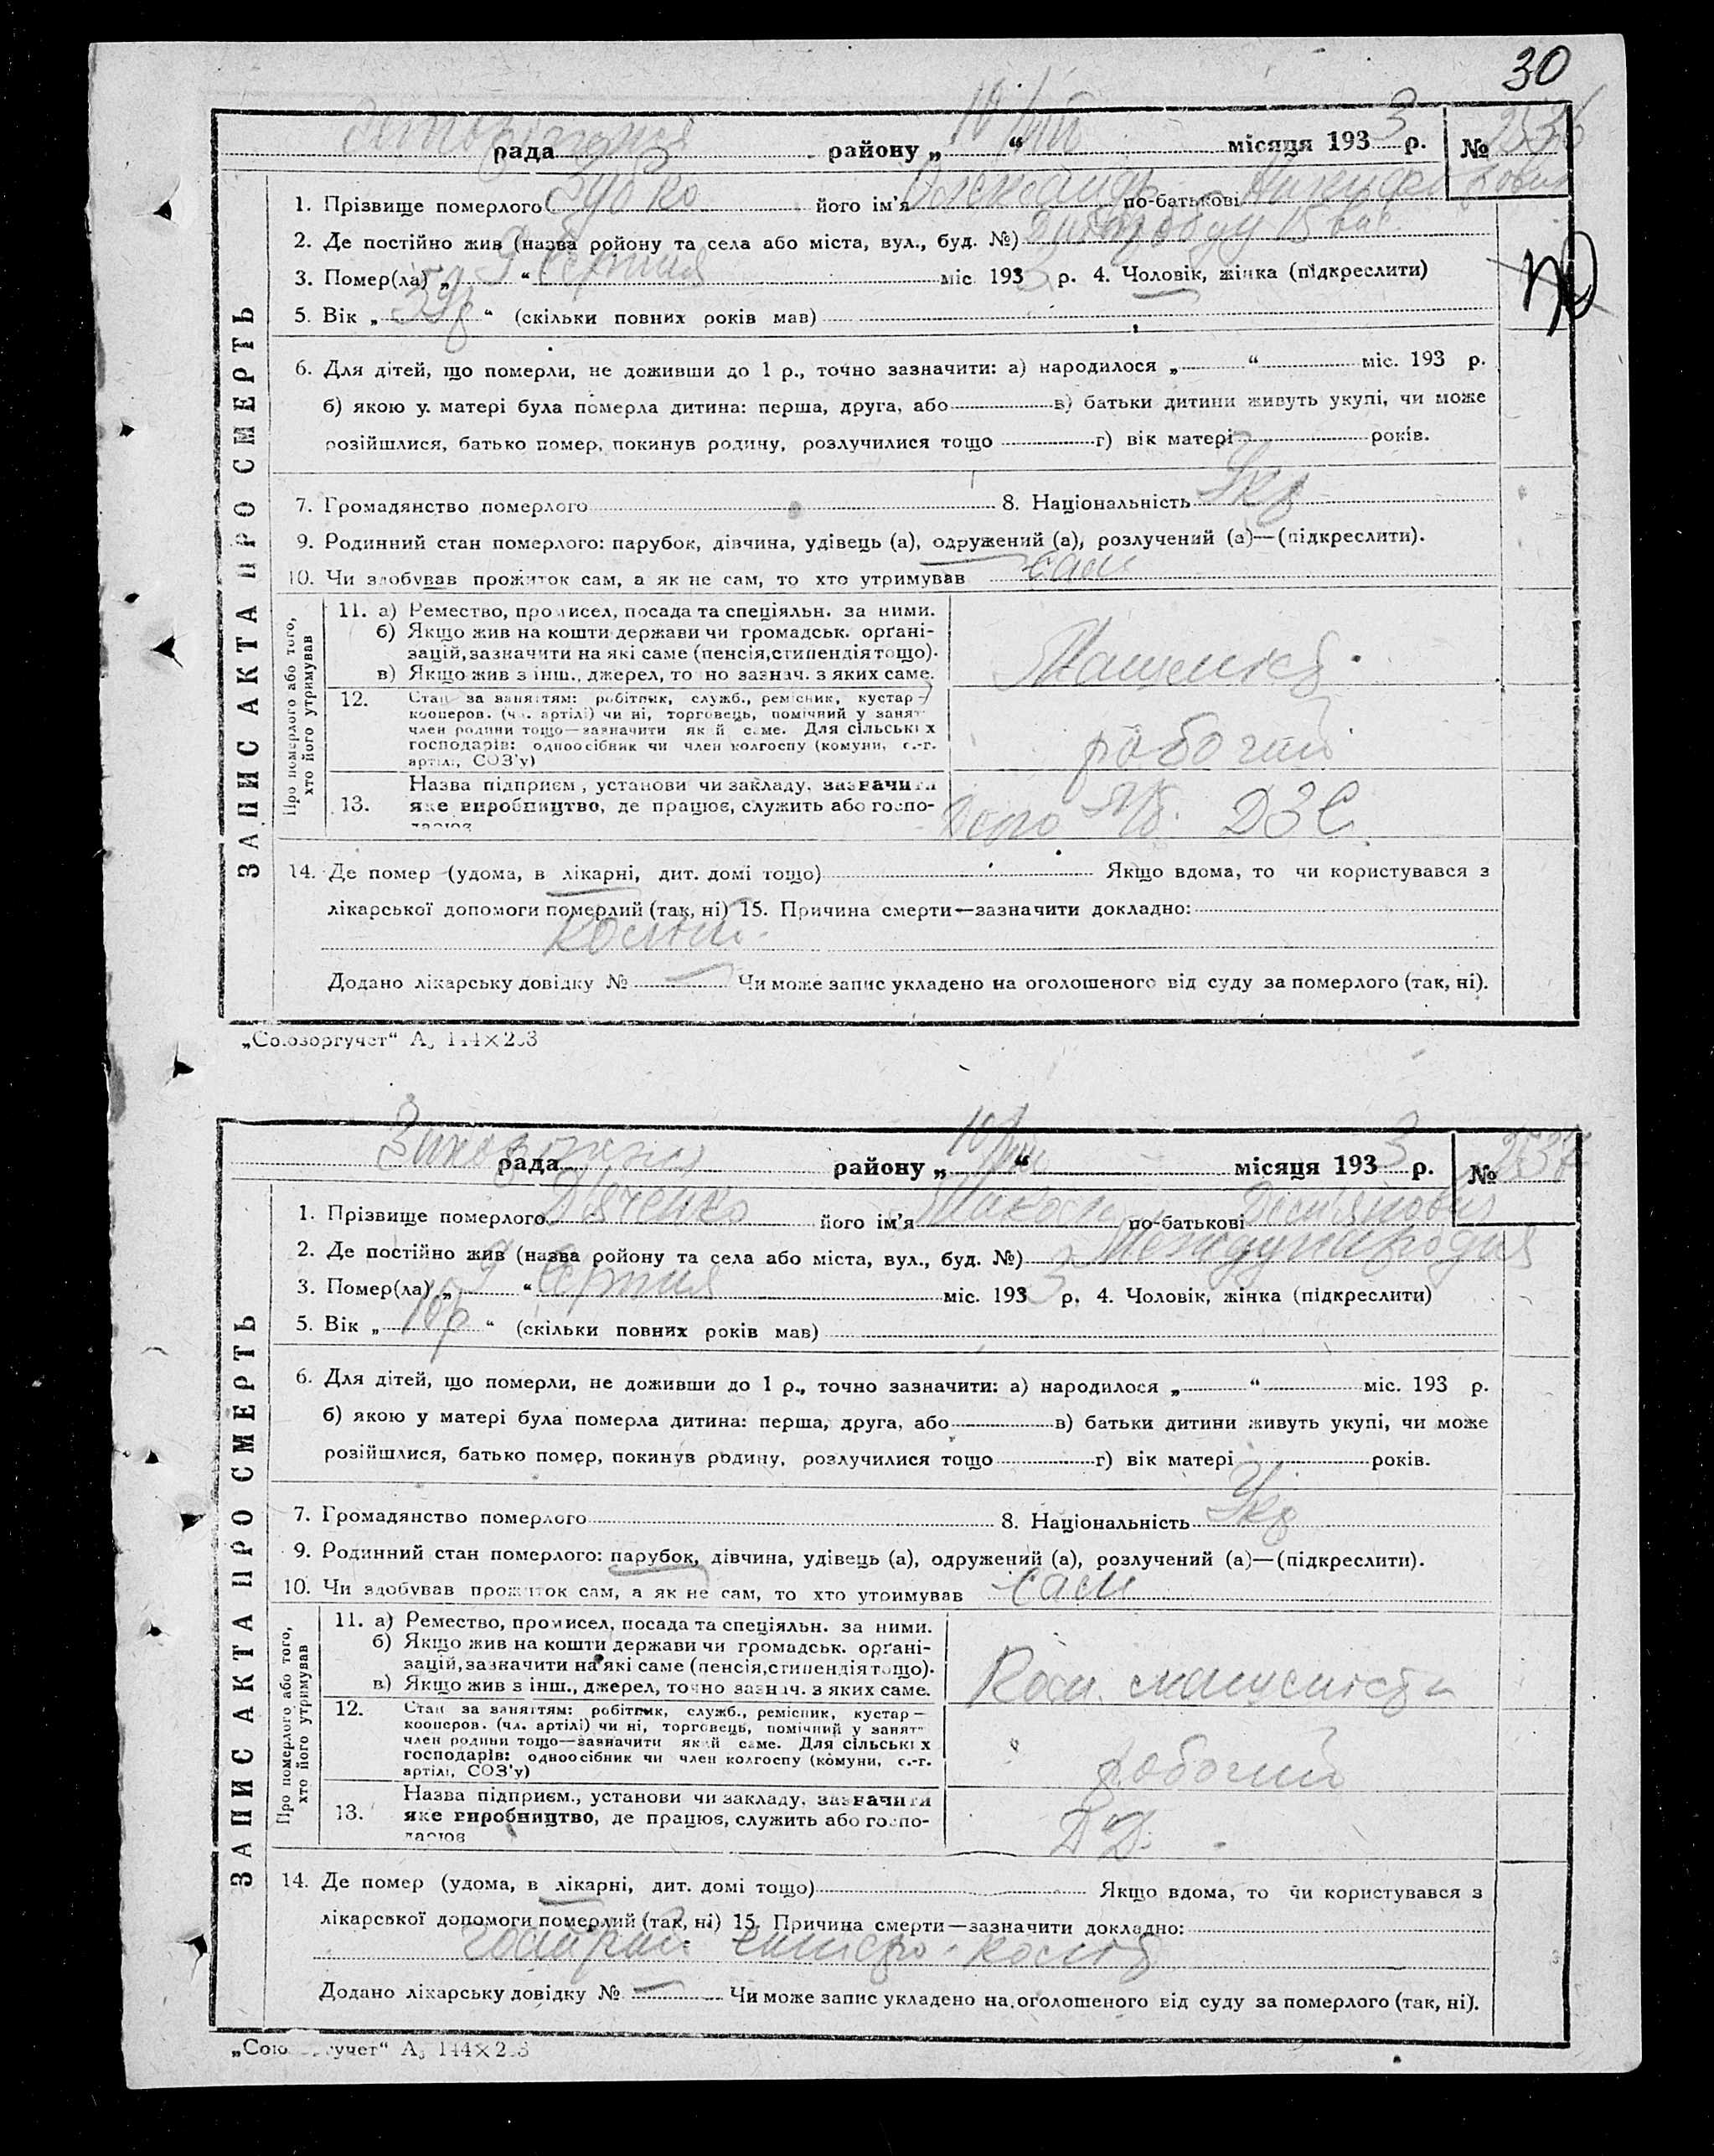 30
рада району „ 10/VIII “ місяця 1933 р. № 2536
1. Прізвище померлого Зубко його ім'я Олександр по-батькові
2. Де постійно жив (назва ройону та села або міста, вул., буд. №) 15
3. Помер(ла) „ 9 “ Серпня міс 1933 р. 4. Чоловік, жінка (підкреслити)
5. Вік „ 39 р “ (скільки повних років мав)
6. Для дітей, що померли, не доживши до 1 р., точно зазначити: а) народилося „ “ міс. 193 р.
б) якою у. матері була померла дитина: перша, друга, або в) батьки дитини живуть укупі, чи може
розійшлися, батько помер, покинув родину, розлучилися тощо г) вік матері років.
7. Громадянство померлого 8. Національність Укр
9. Родинний стан померлого: парубок, дівчина, удівець (а), одружений (а), розлучений (а)—(підкреслити).
10. Чи здобував прожиток сам, а як не сам, то хто утримував сам
ЗАПИС АКТА ПРО СМЕРТЬ
Про померлого або того, хто його утримував
11. а) Ремество, промисел, посада та спеціяльн. за ними.
б) Якщо жив на кошти держави чи громадськ. орґані-
зацій, зазначити на які саме (пенсія, стипендія тощо).
в) Якщо жив з інш., джерел, точно зазнач. з яких саме.
Машиніст
12. Стан за заняттям: робітник, служб., ремісник, кустар—
кооперов. (чл. артілі) чи ні, торговець, помічний у занят-
член родини тощо—зазначити який саме. Для сільських
господарів: одноосібник чи член колгоспу (комуни, с.-г.
артілі, СОЗ'у)
робочий
13. Назва підприєм., установи чи закладу, зазначити
яке виробництво, де працює, служить або госпо-
дарює
ДЗС
14. Де помер (удома, в лікарні, дит. домі тощо) Якщо вдома, то чи користувався з
лікарської допомоги померлий (так, ні) 15. Причина смерти—зазначити докладно:
Додано лікарську довідку № — Чи може запис укладено на оголошеного від суду за померлого (так, ні).
„Союзоргучет“ А5 144×203
рада району „ 10/VIII “ місяця 1933 р. № 2537
1. Прізвище померлого Дяченко його ім'я Микола по-батькові Дем'янович
2. Де постійно жив (назва ройону та села або міста, вул., буд. №) Международня
3. Помер(ла) „ 9 “ Серпня міс. 1933 р. 4. Чоловік, жінка (підкреслити)
5. Вік „ “ (скільки повних років мав)
6. Для дітей, що померли, не доживши до 1 р., точно зазначити: а) народилося „ “ міс. 193 р.
б) якою у матері була померла дитина: перша, друга, або в) батьки дитини живуть укупі, чи може
розійшлися, батько помер, покинув родину, розлучилися тощо г) вік матері років.
7. Громадянство померлого 8. Національність Укр
9. Родинний стан померлого: парубок, дівчина, удівець (а), одружений (а), розлучений (а)—(підкреслити).
10. Чи здобував прожиток сам, а як не сам, то хто утримував сам
ЗАПИС АКТА ПРО СМЕРТЬ
Про померлого або того, хто його утримував
11. а) Ремество, промисел, посада та спеціяльн. за ними.
б) Якщо жив на кошти держави чи громадськ. орґані-
зацій, зазначити на які саме (пенсія, стипендія тощо).
в) Якщо жив з інш., джерел, точно зазнач. з яких саме.
12. Стан за заняттям: робітник, служб., ремісник, кустар—
кооперов. (чл. артілі) чи ні, торговець, помічний у занят-
член родини тощо—зазначити який саме. Для сільських
господарів: одноосібник чи член колгоспу (комуни, с.-г.
артілі, СОЗ'у)
робочий
13. Назва підприєм., установи чи закладу, зазначити
яке виробництво, де працює, служить або госпо-
дарює
14. Де помер (удома, в лікарні, дит. домі тощо) Якщо вдома, то чи користувався з
лікарської допомоги померлий (так, ні) 15. Причина смерти—зазначити докладно:
гострий
Додано лікарську довідку № — Чи може запис укладено на оголошеного від суду за померлого (так, ні).
„Союзоргучет“ А5 144×203